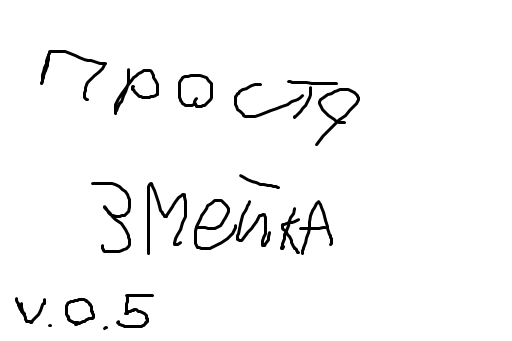 простя
змейка
v.0.5